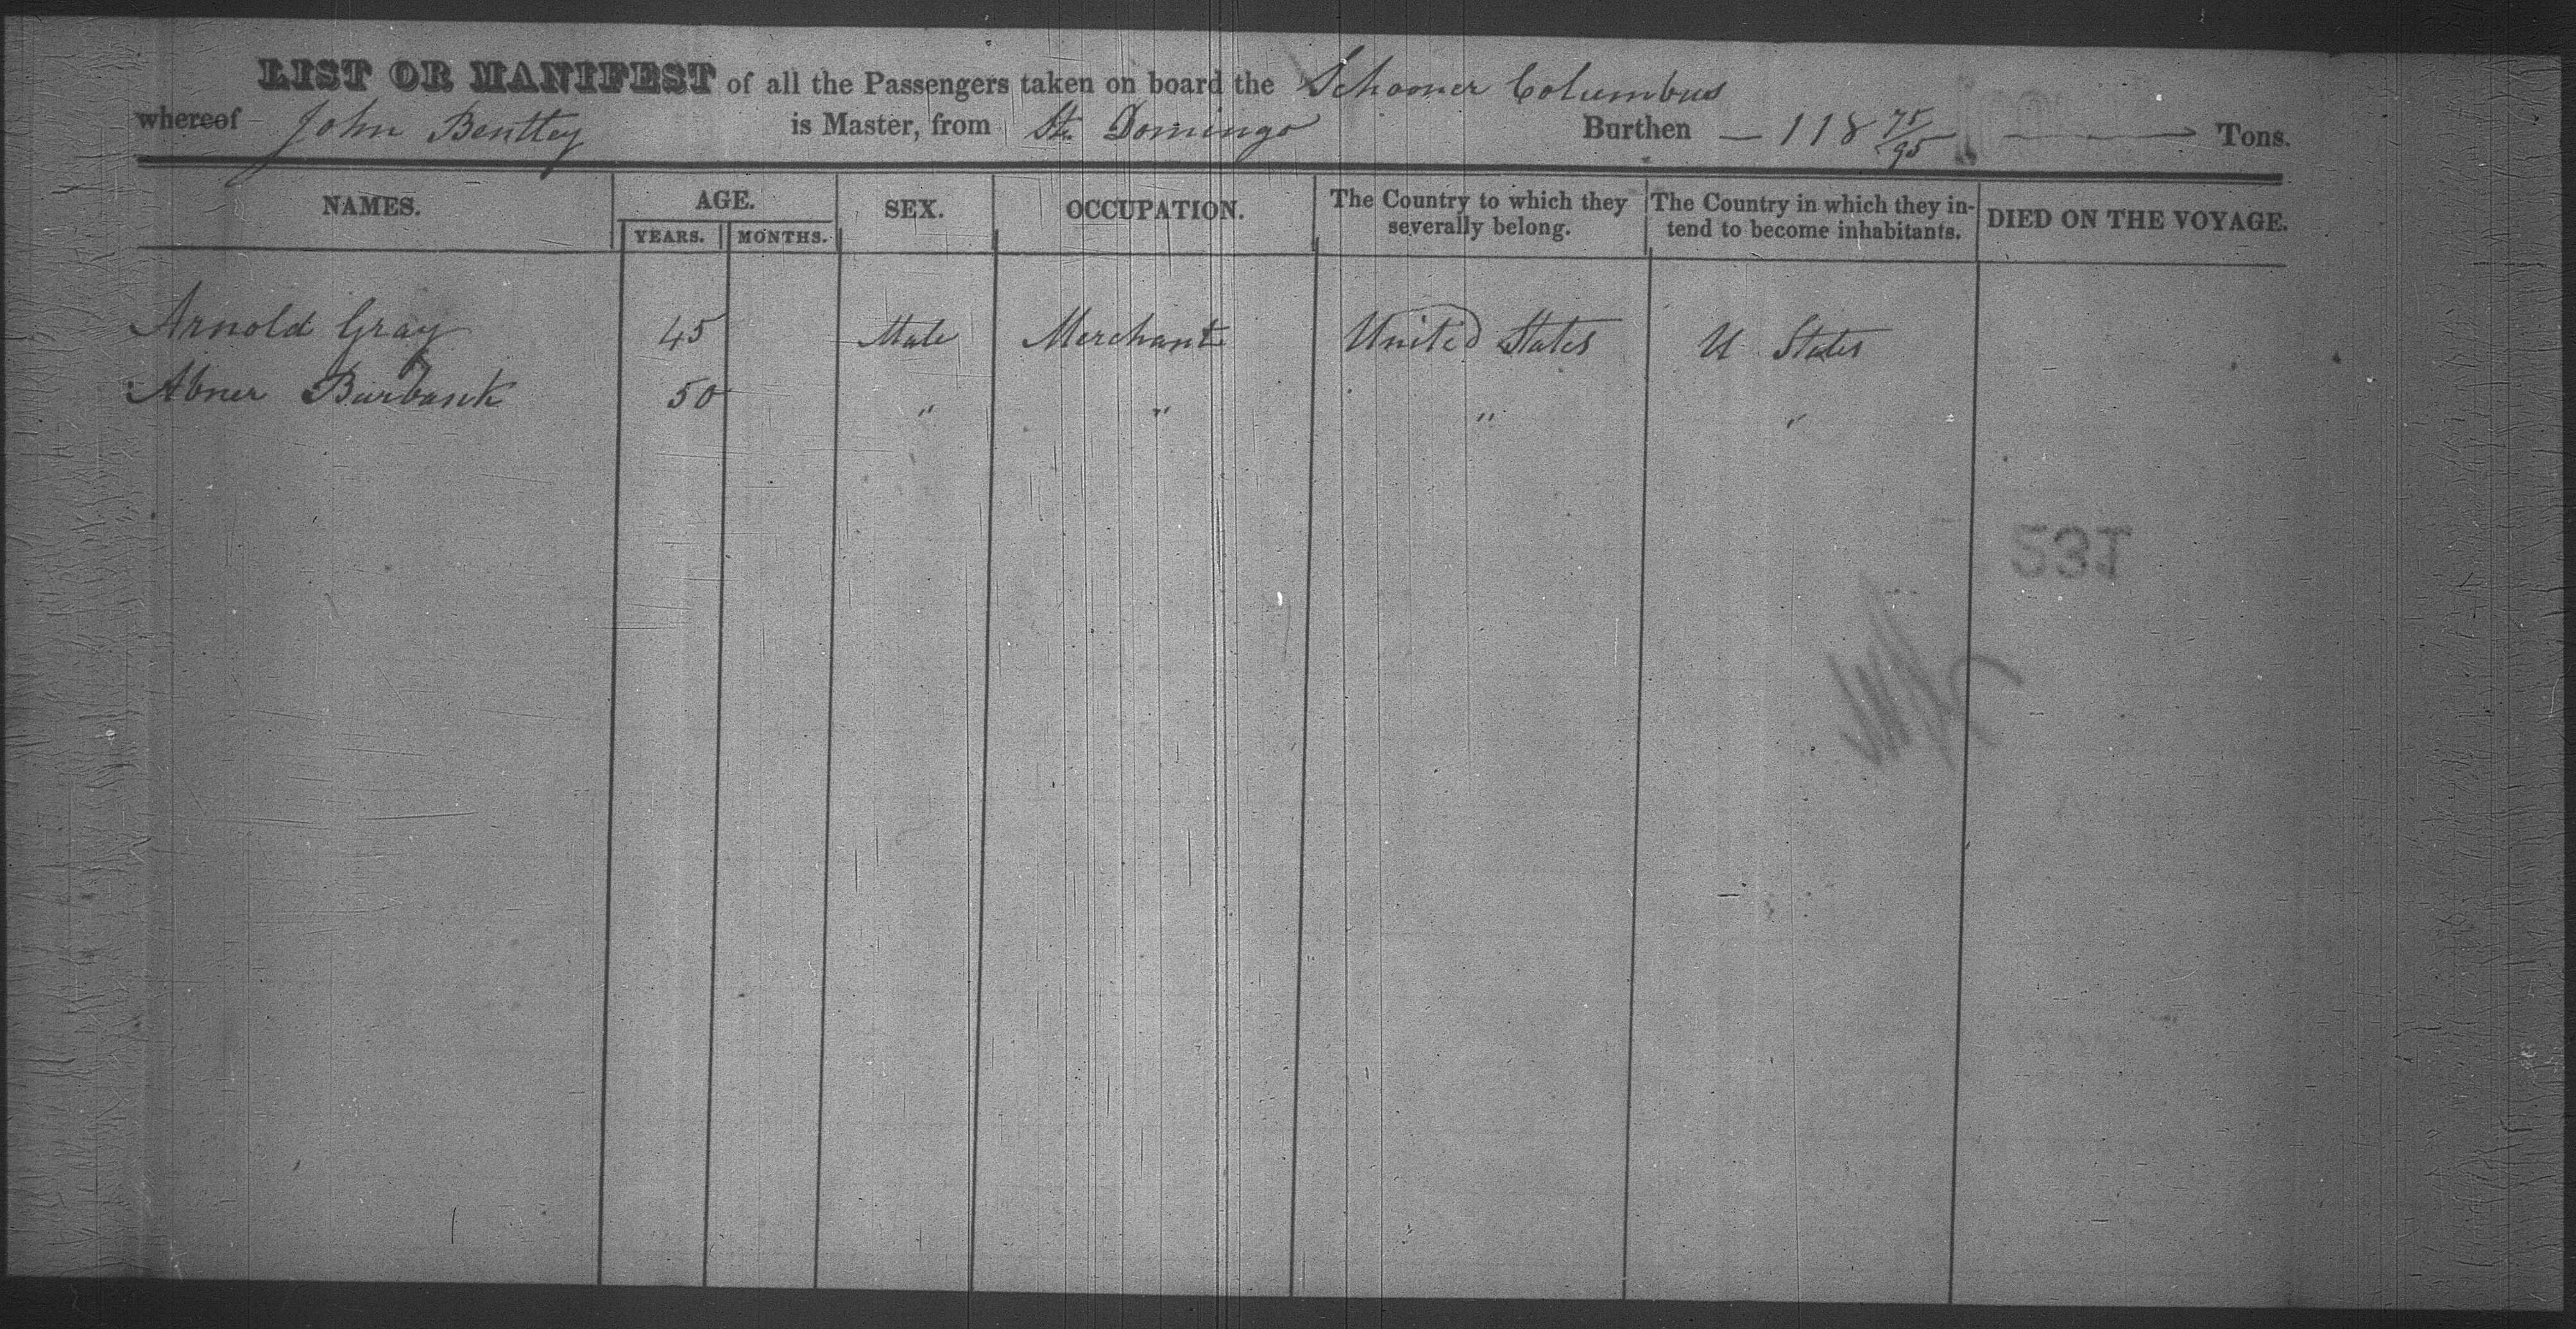 LIST OR MANIFEST of all the Passengers taken on board the Schooner Columbus
whereof John Bentley is Master, from St. Domingo Burthen — 118 75/95 — Tons.
NAMES. AGE. SEX. OCCUPATION. The Country to which they severally belong. The Country in which they intend to become inhabitants. DIED ON THE VOYAGE.
YEARS. MONTHS.
Arnold Gray 45 Male Merchant United States U States
Abner Burbank 50 " " " "